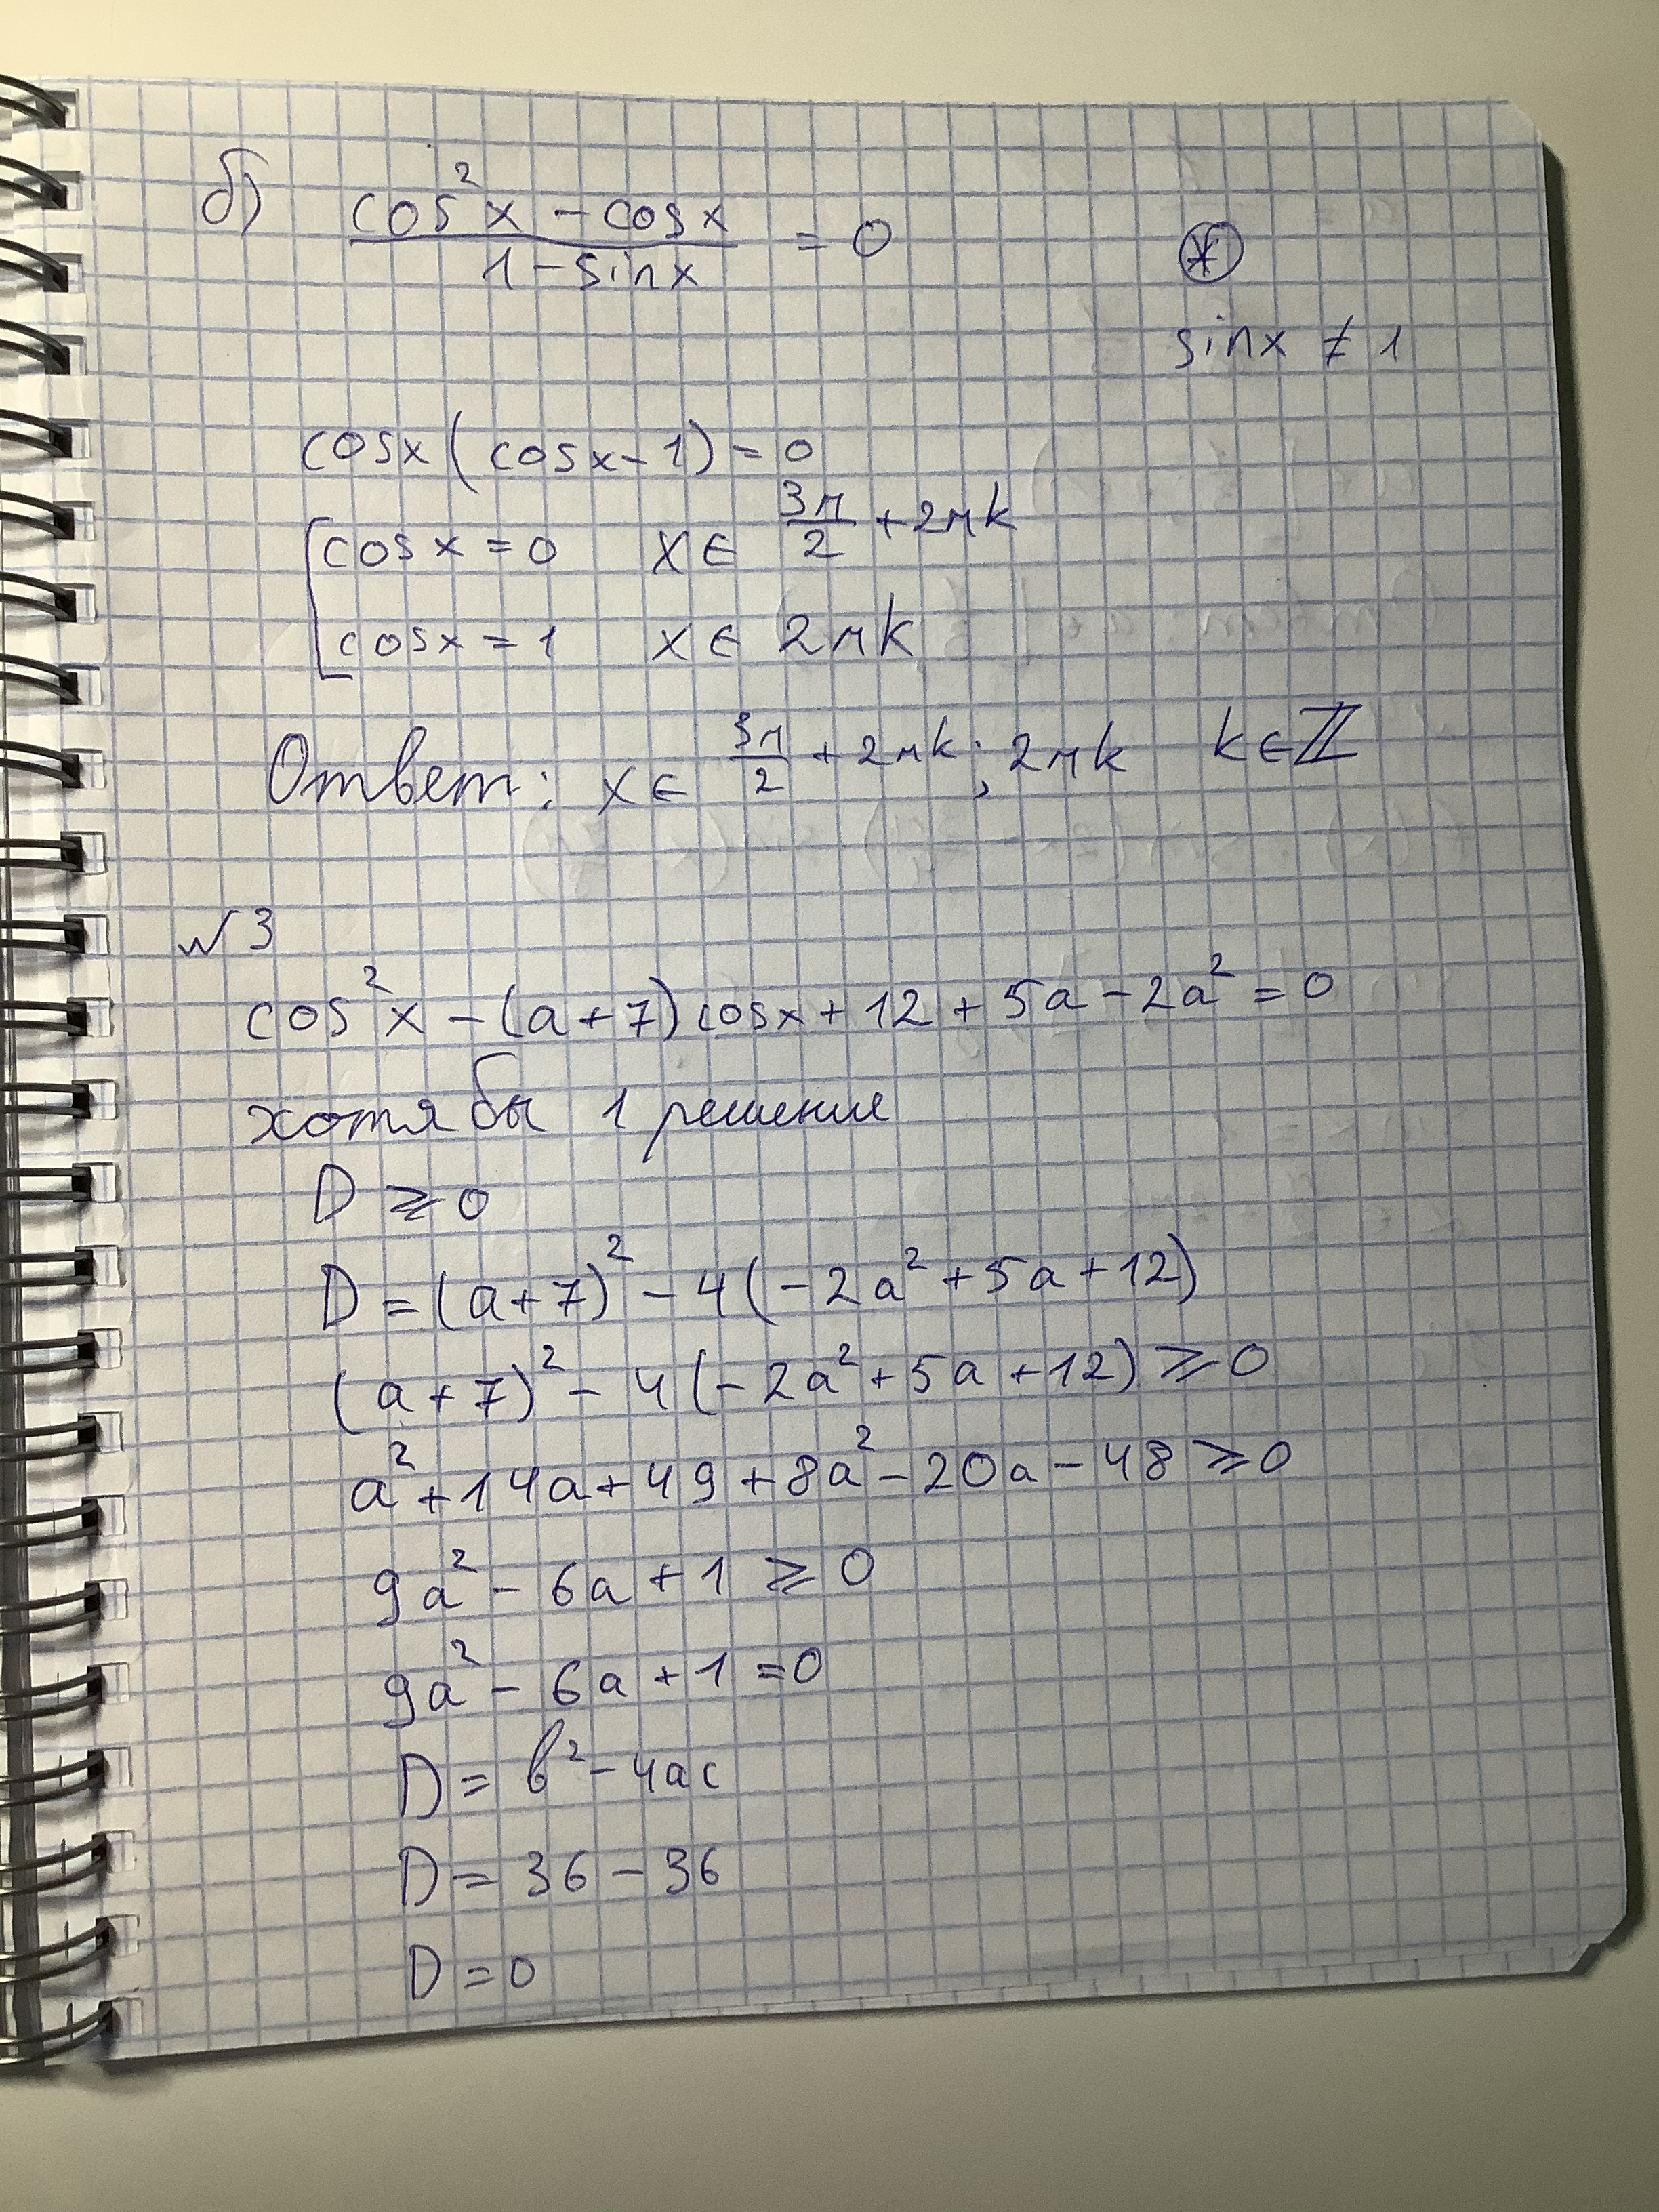 б) (cos²x − cosx)/(1 − sinx) = 0
*
sinx ≠ 1
cosx(cosx − 1) = 0
[cosx = 0 x ∈ 3π/2 + 2πk
cosx = 1 x ∈ 2πk
Ответ: x ∈ 3π/2 + 2πk; 2πk k ∈ ℤ
№3
cos²x − (a+7)cosx + 12 + 5a − 2a² = 0
хотя бы 1 решение
D ⩾ 0
D = (a+7)² − 4(−2a² + 5a + 12)
(a+7)² − 4(−2a² + 5a + 12) ⩾ 0
a² + 14a + 49 + 8a² − 20a − 48 ⩾ 0
9a² − 6a + 1 ⩾ 0
9a² − 6a + 1 = 0
D = b² − 4ac
D = 36 − 36
D = 0